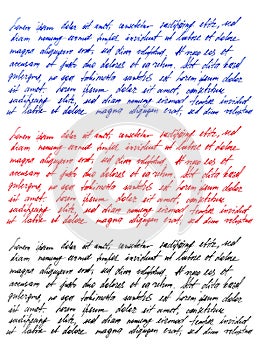 Lorem ipsum dolor sit amet, consetetur sadipscing elitr, sed
diam nonumy eirmod tempor invidunt ut labore et dolore
magna aliquyam erat, sed diam voluptua. At vero eos et
accusam et justo duo dolores et ea rebum. Stet clita kasd
gubergren, no sea takimata sanctus est Lorem ipsum dolor
sit amet. Lorem ipsum dolor sit amet, consetetur
sadipscing elitr, sed diam nonumy eirmod tempor invidunt
ut labore et dolore magna aliquyam erat, sed diam voluptua
Lorem ipsum dolor sit amet, consetetur sadipscing elitr, sed
diam nonumy eirmod tempor invidunt ut labore et dolore
magna aliquyam erat, sed diam voluptua. At vero eos et
accusam et justo duo dolores et ea rebum. Stet clita kasd
gubergren, no sea takimata sanctus est Lorem ipsum dolor
sit amet. Lorem ipsum dolor sit amet, consetetur
sadipscing elitr, sed diam nonumy eirmod tempor invidunt
ut labore et dolore magna aliquyam erat, sed diam voluptua
Lorem ipsum dolor sit amet, consetetur sadipscing elitr, sed
diam nonumy eirmod tempor invidunt ut labore et dolore
magna aliquyam erat, sed diam voluptua. At vero eos et
accusam et justo duo dolores et ea rebum. Stet clita kasd
gubergren, no sea takimata sanctus est Lorem ipsum dolor
sit amet. Lorem ipsum dolor sit amet, consetetur
sadipscing elitr, sed diam nonumy eirmod tempor invidunt
ut labore et dolore magna aliquyam erat, sed diam voluptua